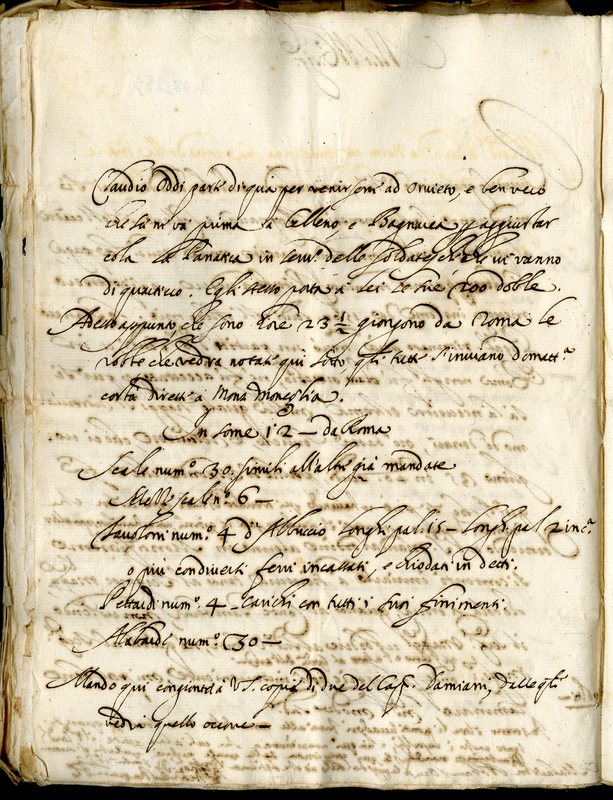 Claudio Oddi parte di quà per venirsene ad Orvieto, e ben vero
che se ne và prima à Celleno e Bagnarea p aggiustar
cola la Panatica in serv.º delle soldatesche che vi vanno
di quartiero. Egli stesso porta à lei le 200 doble.
Adesso appunto, che sono hore 23 ½ giongono da Roma le
robbe che vedrà notate quì sotto, quali tutte s'inviano domatt.ª
costà dirette à Mons.
In some 12 — da Roma
Scale num.º 30. simili all'altre già mandate
Mezze scale n.º 6 —
Tavoloni num.º 4 d'Abbuccio longhi pal. 15 — larghi pal. 2 inc.ª
o più con diversi ferri incassati, e chiodati in detti.
Pettardi num.º 4 — carichi con tutti i suoi finimenti.
Alabarde num.º 30 —
Mando qui congionta à V.S. copia di due del Cap. Damiani, dalle qli
vedrà quello occorre —